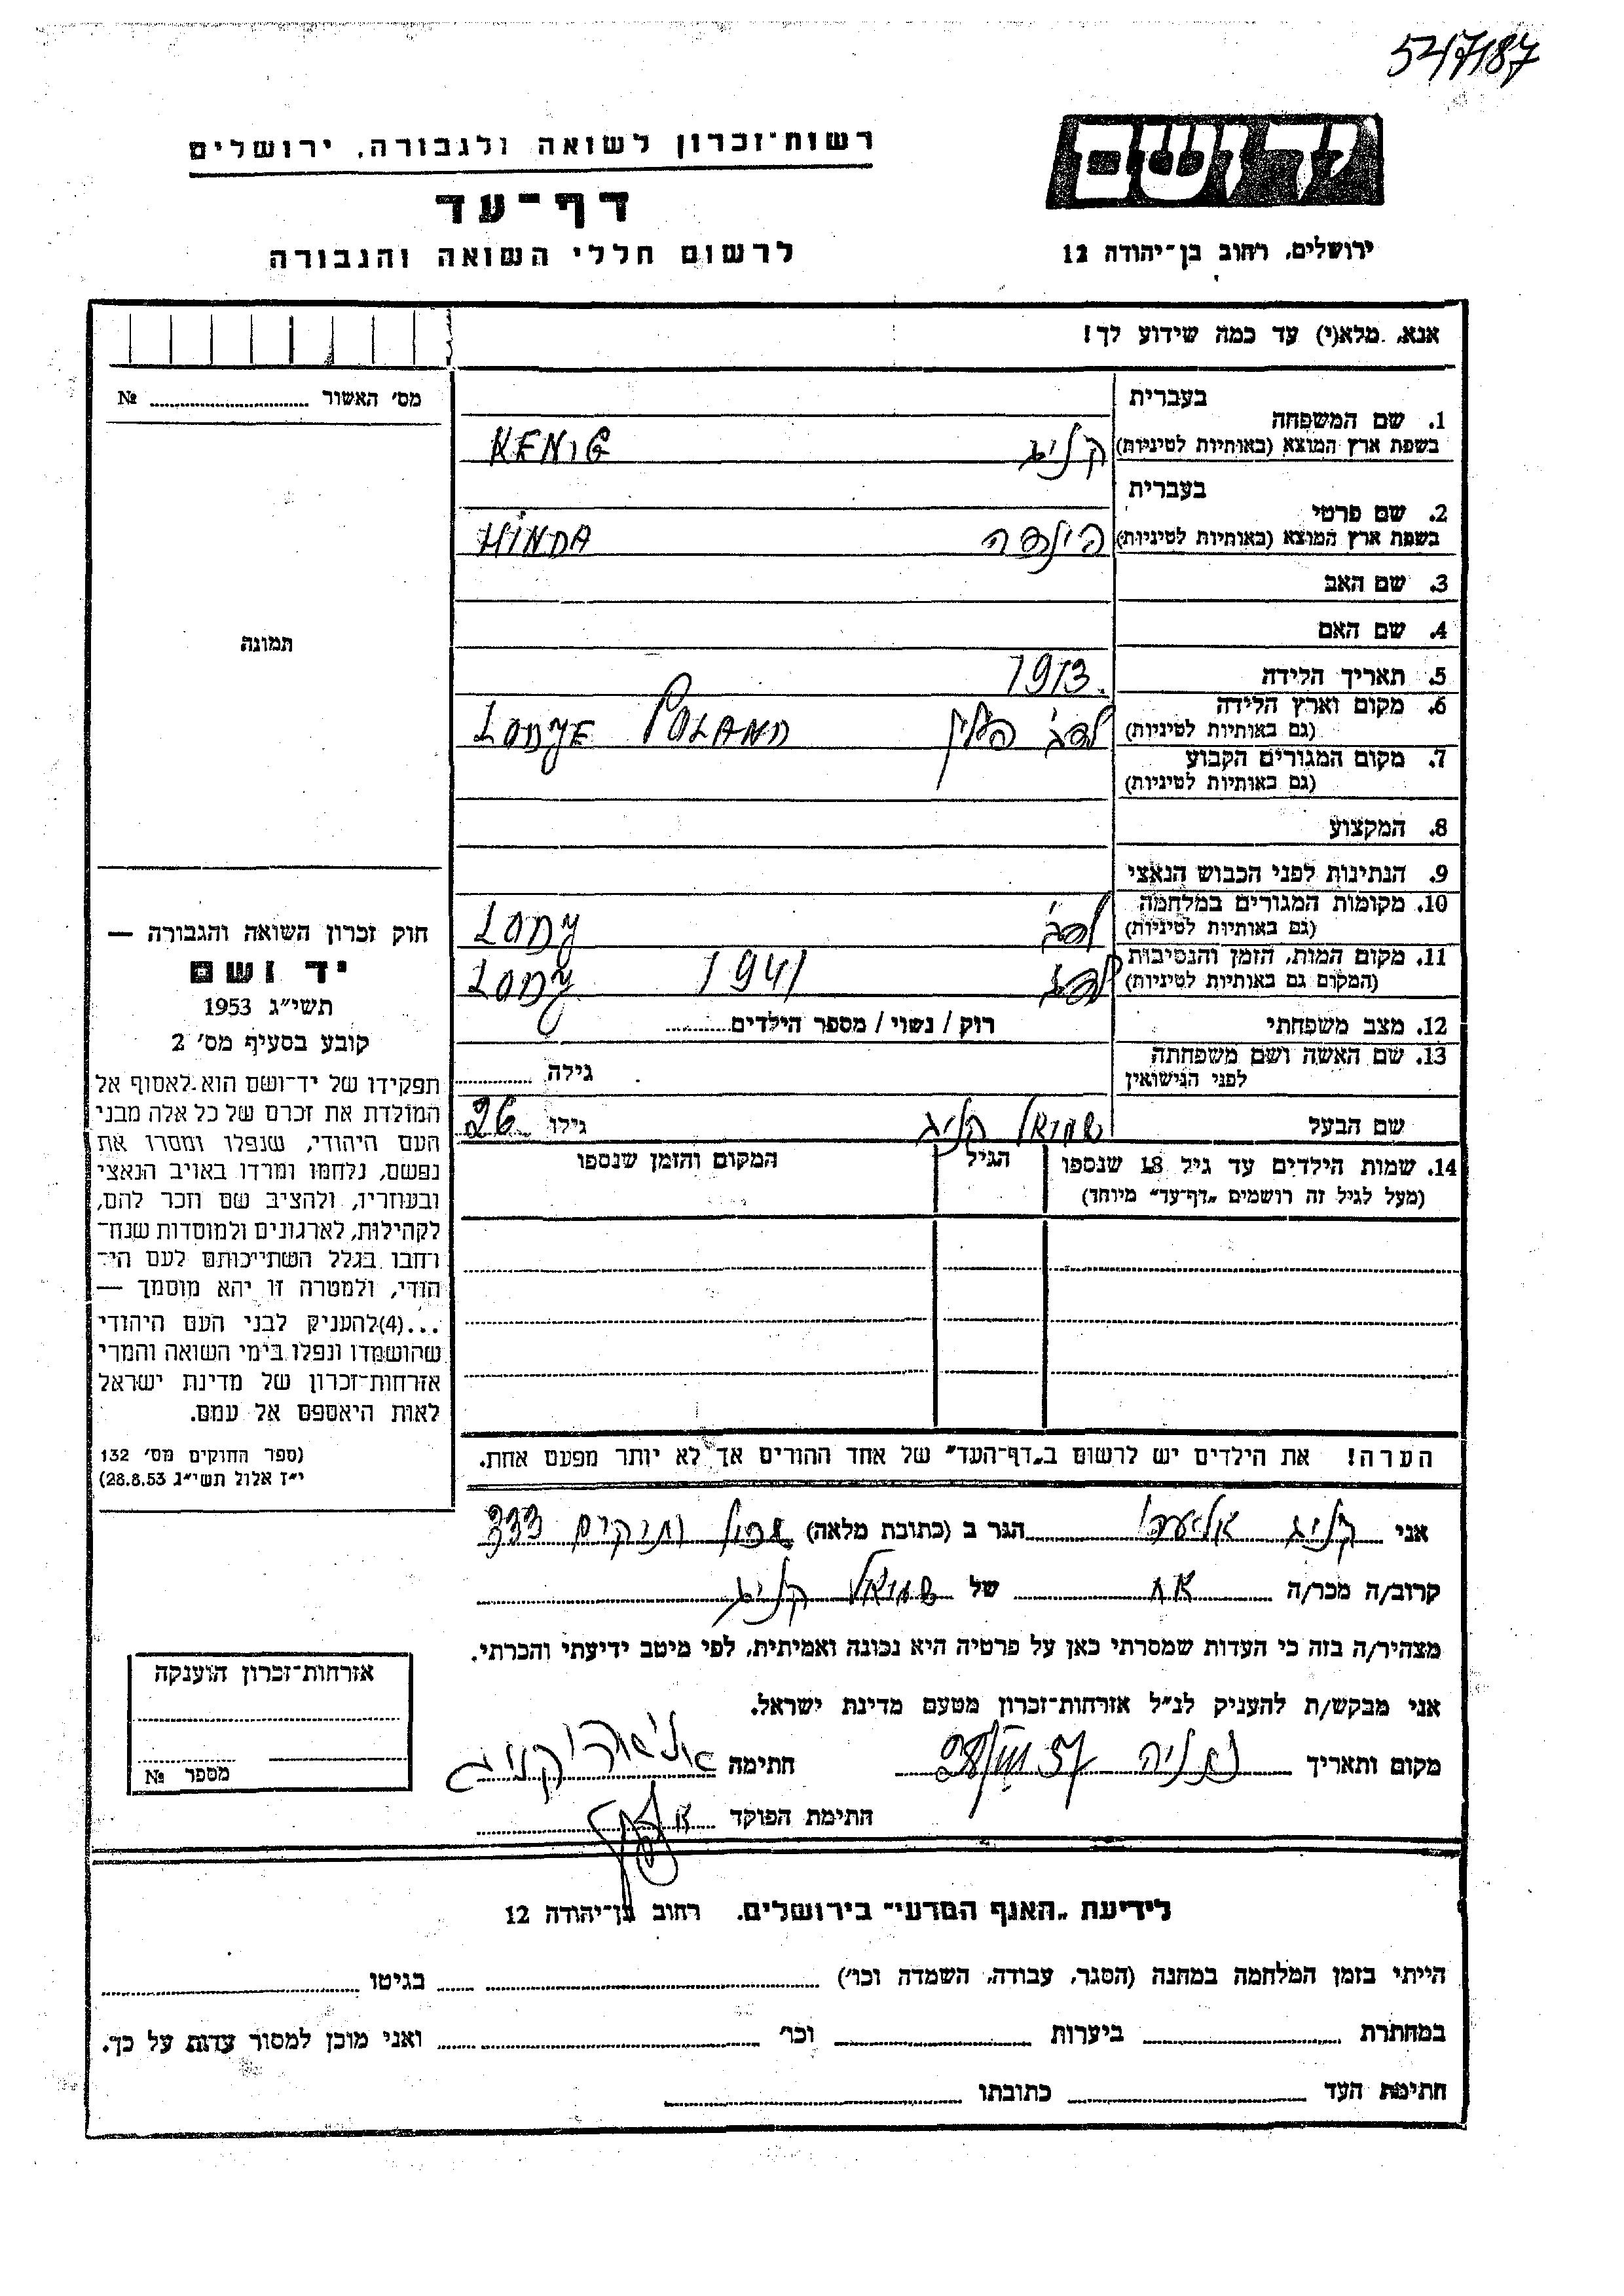 547187
יד ושם
רשות־זכרון לשואה ולגבורה, ירושלים
דף־עד
לרשום חללי השואה והגבורה
ירושלים, רחוב בן־יהודה 12
אנא, מלא(י) עד כמה שידוע לך!
מס' האשור ........ №
תמונה
1. שם המשפחה
בעברית
בשפת ארץ המוצא (באותיות לטיניות) קניג KENIG
2. שם פרטי
בעברית
בשפת ארץ המוצא (באותיות לטיניות) הינדה HINDA
3. שם האב
4. שם האם
5. תאריך הלידה 1913
6. מקום וארץ הלידה
(גם באותיות לטיניות) לודג' פולין LODJE POLAND
7. מקום המגורים הקבוע
(גם באותיות לטיניות)
8. המקצוע
9. הנתינות לפני הכבוש הנאצי
10. מקומות המגורים במלחמה
(גם באותיות לטיניות) לודג' LODJ
11. מקום המות, הזמן והנסיבות
(המקום גם באותיות לטיניות) לודג' 1941 LODJ
12. מצב משפחתי רוק / נשוי / מספר הילדים........
13. שם האשה ושם משפחתה
לפני הנישואין גילה ........
שם הבעל שמואל קניג גילו 26
14. שמות הילדים עד גיל 18 שנספו
(מעל לגיל זה רושמים „דף־עד" מיוחד)
הגיל
המקום והזמן שנספו
חוק זכרון השואה והגבורה —
יד ושם
תשי"ג 1953
קובע בסעיף מס' 2
תפקידו של יד־ושם הוא לאסוף אל
המולדת את זכרם של כל אלה מבני
העם היהודי, שנפלו ומסרו את
נפשם, נלחמו ומרדו באויב הנאצי
ובעוזריו, ולהציב שם וזכר להם,
לקהילות, לארגונים ולמוסדות שנח־
רחבו בגלל השתייכותם לעם הי־
הודי, ולמטרה זו יהא מוסמך —
...(4)להעניק לבני העם היהודי
שהושמדו ונפלו בימי השואה והמרי
אזרחות־זכרון של מדינת ישראל
לאות היאספם אל עמם.
(ספר החוקים מס' 132
י"ז אלול תשי"ג 28.8.53)
הערה! את הילדים יש לרשום ב„דף־העד" של אחד ההורים אך לא יותר מפעם אחת.
אני קניג הגר ב (כתובת מלאה) ותיקים 333
קרוב/ה מכר/ה אח של שמואל קניג
מצהיר/ה בזה כי העדות שמסרתי כאן על פרטיה היא נכונה ואמיתית, לפי מיטב ידיעתי והכרתי.
אני מבקש/ת להעניק לנ"ל אזרחות־זכרון מטעם מדינת ישראל.
מקום ותאריך נתניה 28/VIII 57 חתימה קניג
חתימת הפוקד
אזרחות־זכרון הוענקה
מספר №
לידיעת „האגף המדעי" בירושלים. רחוב בן־יהודה 12
הייתי בזמן המלחמה במחנה (הסגר, עבודה, השמדה וכו') ........ בגיטו ........
במחתרת ........ ביערות ........ וכו' ........ ואני מוכן למסור עדות על כך.
חתימת העד ........ כתובתו ........